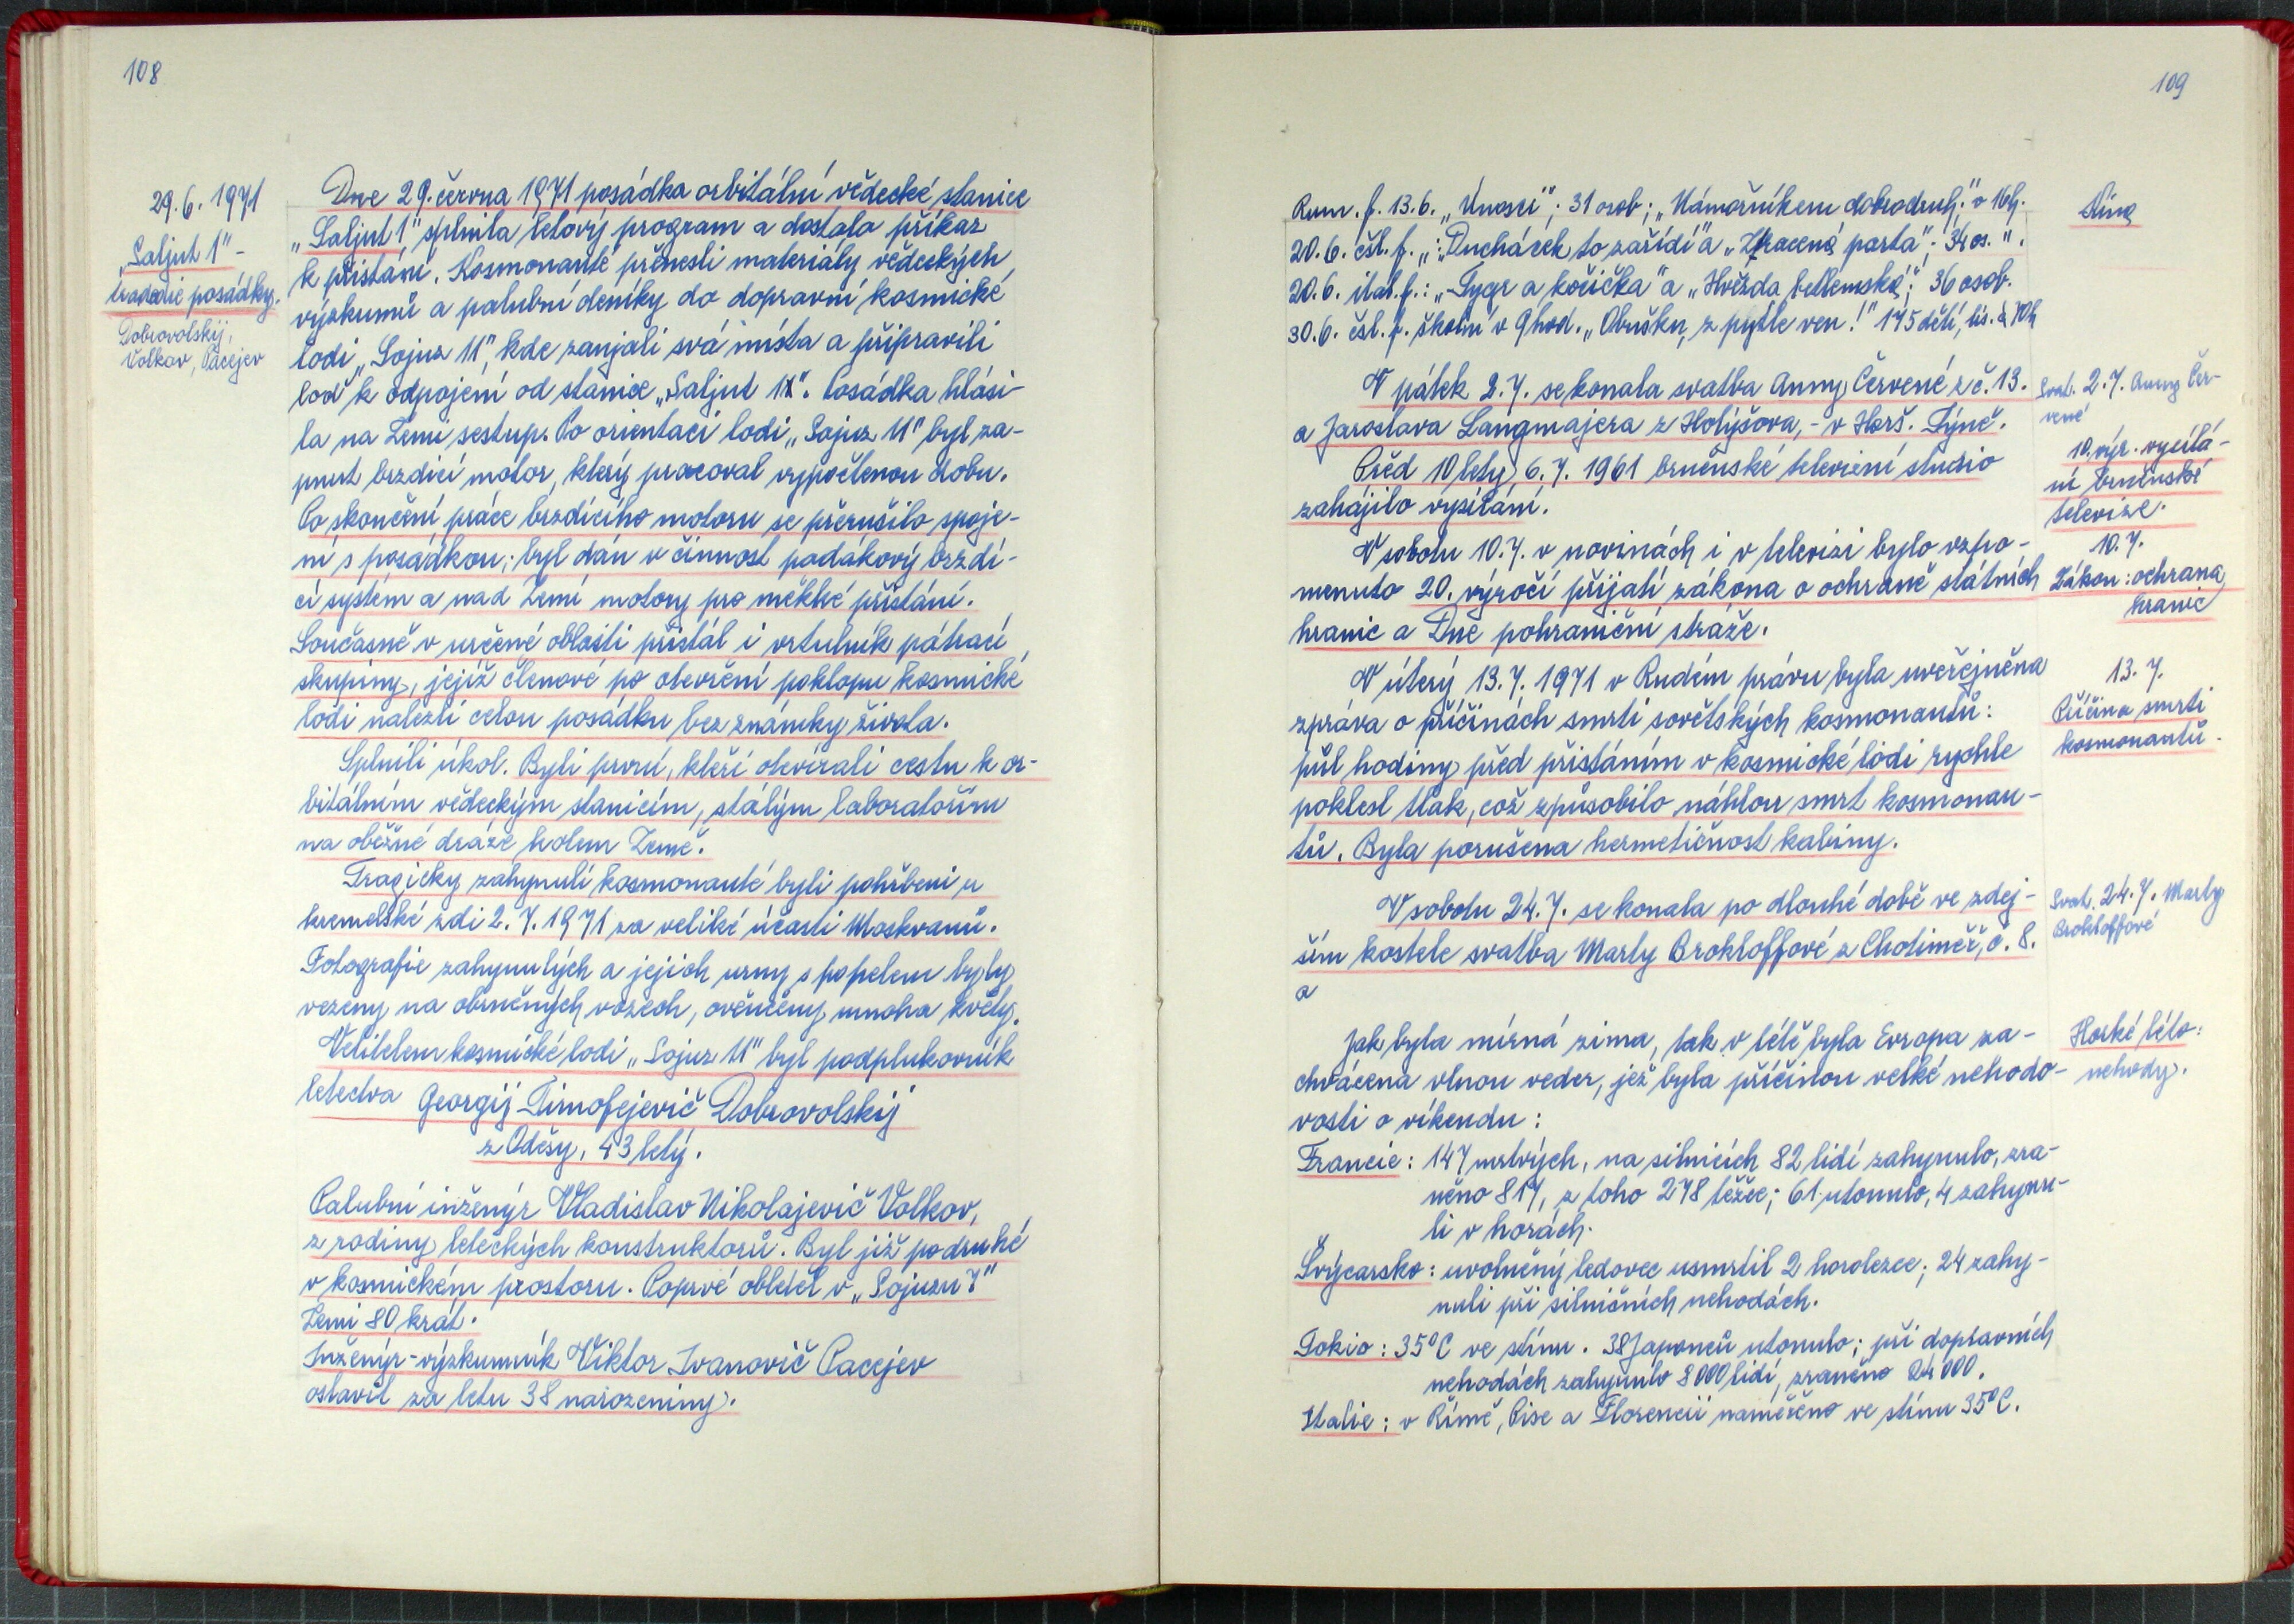 108
29.6.1971
„Saljut 1" -
tragedie posádky.
Dobrovolskij,
Volkov, Pacejev
Dne 29. června 1971 posádka orbitální vědecké stanice
„Saljut 1" splnila letový program a dostala příkaz
k přistání. Kosmonauté přenesli materiály vědeckých
výzkumů a palubní deníky do dopravní kosmické
lodi „Sojuz 11", kde zanjali svá místa a připravili
loď k odpojení od stanice „Saljut 1". Posádka hlási-
la na Zemi sestup. Po orientaci lodi „Sojuz 11" byl za-
pnut brzdicí motor, který pracoval vypočtenou dobu.
Po skončení práce brzdícího motoru se přerušilo spoje-
ní s posádkou; byl dán v činnost padákový brzdí-
cí systém a nad Zemí motory pro měkké přistání.
Současně v určené oblasti přistál i vrtulník pátrací
skupiny, jejíž členové po otevření poklopu kosmické
lodi nalezli celou posádku bez známky života.
Splnili úkol. Byli první, kteří otevírali cestu k or-
bitálním vědeckým stanicím, stálým laboratořím
na oběžné dráze kolem Země.
Tragicky zahynulí kosmonauté byli pohřbeni u
kremelské zdi 2.7.1971 za veliké účasti Moskvanů.
Fotografie zahynulých a jejich urny s popelem byly
vezeny na obrněných vozech, ověnčeny mnoha květy.
Velitelem kosmické lodi „Sojuz 11" byl podplukovník
letectva Georgij Timofejevič Dobrovolskij
z Oděsy, 43letý.
Palubní inženýr Vladislav Nikolajevič Volkov,
z rodiny leteckých konstruktorů. Byl již podruhé
v kosmickém prostoru. Poprvé obletěl v „Sojuzu 7"
Zemi 80krát.
Inženýr-výzkumník Viktor Ivanovič Pacejev
oslavil za letu 38 narozeniny.
109
Rum. f. 13.6. „Únosci"; 31 osob; „Námořníkem dobrodruh," v 16h.
20.6. čsl. f. „: Ducháček to zařídí" a „Ztracená parta"; 34 os. ".
20.6. ital. f.: „Tygr a kočička" a „Hvězda betlemská"; 36 osob.
30.6. čsl. f. školní v 9 hod. „Obušku, z pytle ven!" 175 dětí,
Kino
V pátek 2.7. se konala svatba Anny Červené z č. 13.
a Jaroslava Langmajera z Holýšova, - v Horš. Týně.
Svat. 2.7. Anny Čer-
vené
Před 10 lety, 6.7. 1961 brněnské televizní studio
zahájilo vysílání.
10. výr. vysílá-
ní brněnské
televize.
V sobotu 10.7. v novinách i v televizi bylo vzpo-
menuto 20. výročí přijatí zákona o ochraně státních
hranic a Dne pohraniční stráže.
10.7.
Zákon: ochrana
hranic
V úterý 13.7. 1971 v Rudém právu byla uveřejněna
zpráva o příčinách smrti sovětských kosmonautů:
půl hodiny před přistáním v kosmické lodi rychle
poklesl tlak, což způsobilo náhlou smrt kosmonau-
tů. Byla porušena hermetičnost kabiny.
13.7.
Příčina smrti
kosmonautů.
V sobotu 24.7. se konala po dlouhé době ve zdej-
ším kostele svatba Marty Brokloffové z Chotiměř, č. 8.
a
Svat. 24.7. Marty
Brokloffové
Jak byla mírná zima, tak v létě byla Evropa za-
chvácena vlnou veder, jež byla příčinou velké nehodo-
vosti o víkendu:
Horké léto:
nehody.
Francie: 147 mrtvých, na silnicích 82 lidí zahynulo, zra-
něno 817, z toho 278 těžce; 61 utonulo, 4 zahynu-
li v horách.
Švýcarsko: uvolněný ledovec usmrtil 2 horolezce; 24 zahy-
nuli při silničních nehodách.
Tokio: 35°C ve stínu. 38 Japonců utonulo; při dopravních
nehodách zahynulo 8000 lidí, zraněno 24 000.
Italie: v Římě, Pise a Florencii naměřeno ve stínu 35°C.